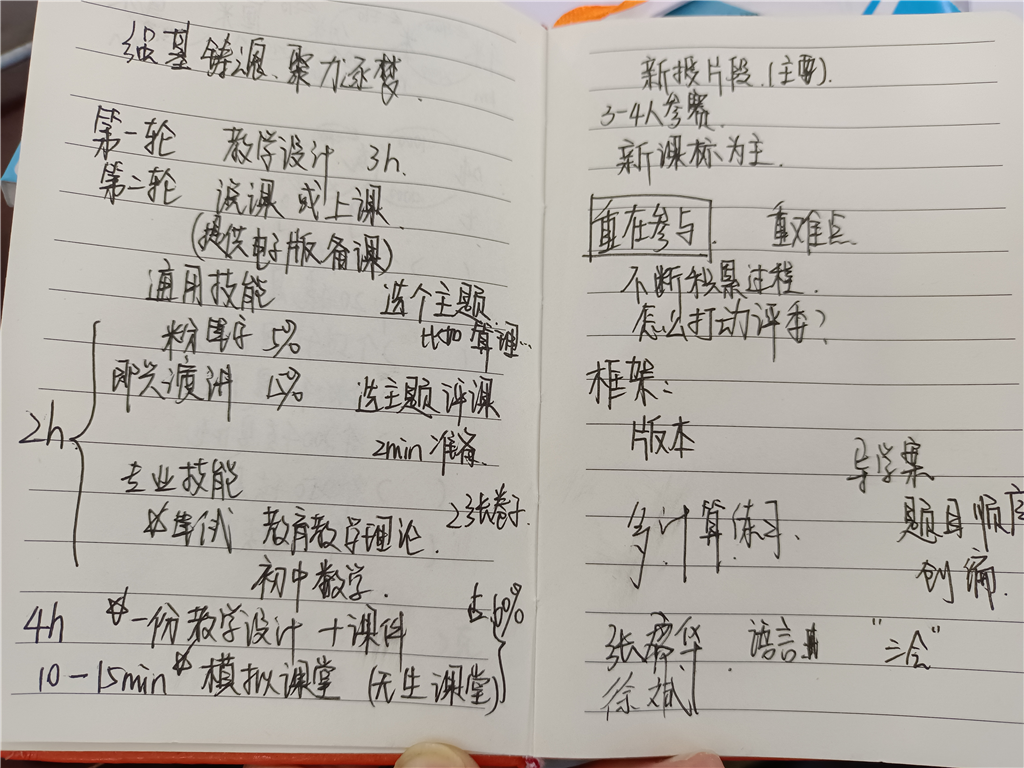 铸源、聚力逐梦
第一轮 教学设计 3h.
第二轮 说课或上课
(提供电子版备课)
通用技能 选个主题
粉笔字 5% 比如算理…
即兴演讲 15% 选主题评课
2h
2min 准备.
专业技能
笔试 教育教学理论. 2张卷子.
初中数学.
占60%
4h ☆一份教学设计+课件
10-15min ☆模拟课堂 (无生课堂)
新授片段.(主要).
3-4人参赛.
新课标为主.
重在参与. 重难点.
不断积累过程.
怎么打动评委?
框架:
版本
导学案
多计算练习、 题目顺序
创编.
张 华 语言 "三会"
徐斌